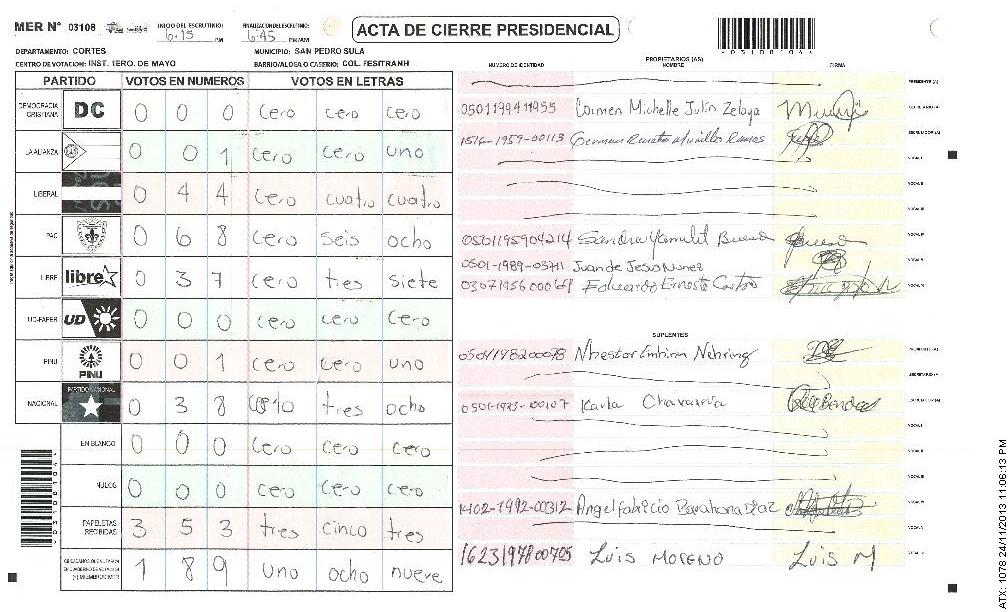 MER N° 03108 INICIO DEL ESCRUTINIO: 6:15 PM FINALIZACION ESCRUTINIO: 6:45 PM/AM
ACTA DE CIERRE PRESIDENCIAL
DEPARTAMENTO: CORTES MUNICIPIO: SAN PEDRO SULA
CENTRO DE VOTACION: INST. 1ERO. DE MAYO BARRIO/ALDEA O CASERIO: COL. FESITRANH
PARTIDO VOTOS EN NUMEROS VOTOS EN LETRAS
DEMOCRACIA CRISTIANA DC 0 0 0 cero cero cero
LA ALIANZA 0 0 1 cero cero uno
LIBERAL 0 4 4 cero cuatro cuatro
PAC 0 6 8 cero seis ocho
LIBRE libre 0 3 7 cero tres siete
UD-FAPER UD 0 0 0 cero cero cero
PINU PINU 0 0 1 cero cero uno
NACIONAL PARTIDO NACIONAL 0 3 8 cero tres ocho
EN BLANCO 0 0 0 cero cero cero
NULOS 0 0 0 cero cero cero
PAPELETAS RECIBIDAS 3 5 3 tres cinco tres
1 8 9 uno ocho nueve
PROPIETARIOS (AS)
NUMERO DE IDENTIDAD NOMBRE FIRMA
PRESIDENTE (A)
0501199411955 Carmen Michelle Julin Zelaya SECRETARIO (A)
1516-1959-00113 German Murillo Ramos ESCRUTADOR (A)
VOCAL I
VOCAL II
VOCAL III
0501195904214 Sandra Yamilet Bueso
0501-1989-05711 Juan de Jesus Nunez VOCAL V
03071956000 Eduardo Ernesto Castro
SUPLENTES
0504198200078 Nhestor Nehring PRESIDENTE (A)
SECRETARIO (A)
0501-1973-00107 Karla ESCRUTADOR (A)
VOCAL I
VOCAL II
VOCAL III
1402-1992-00312- Angel fabricio Barahona Diaz
VOCAL V
1623197800705 Luis MORENO Luis M
ATX: 1078 24/11/2013 11:06:13 PM